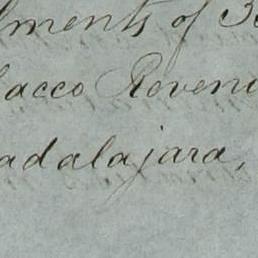 lments of 3
acco Reven
adalajara,